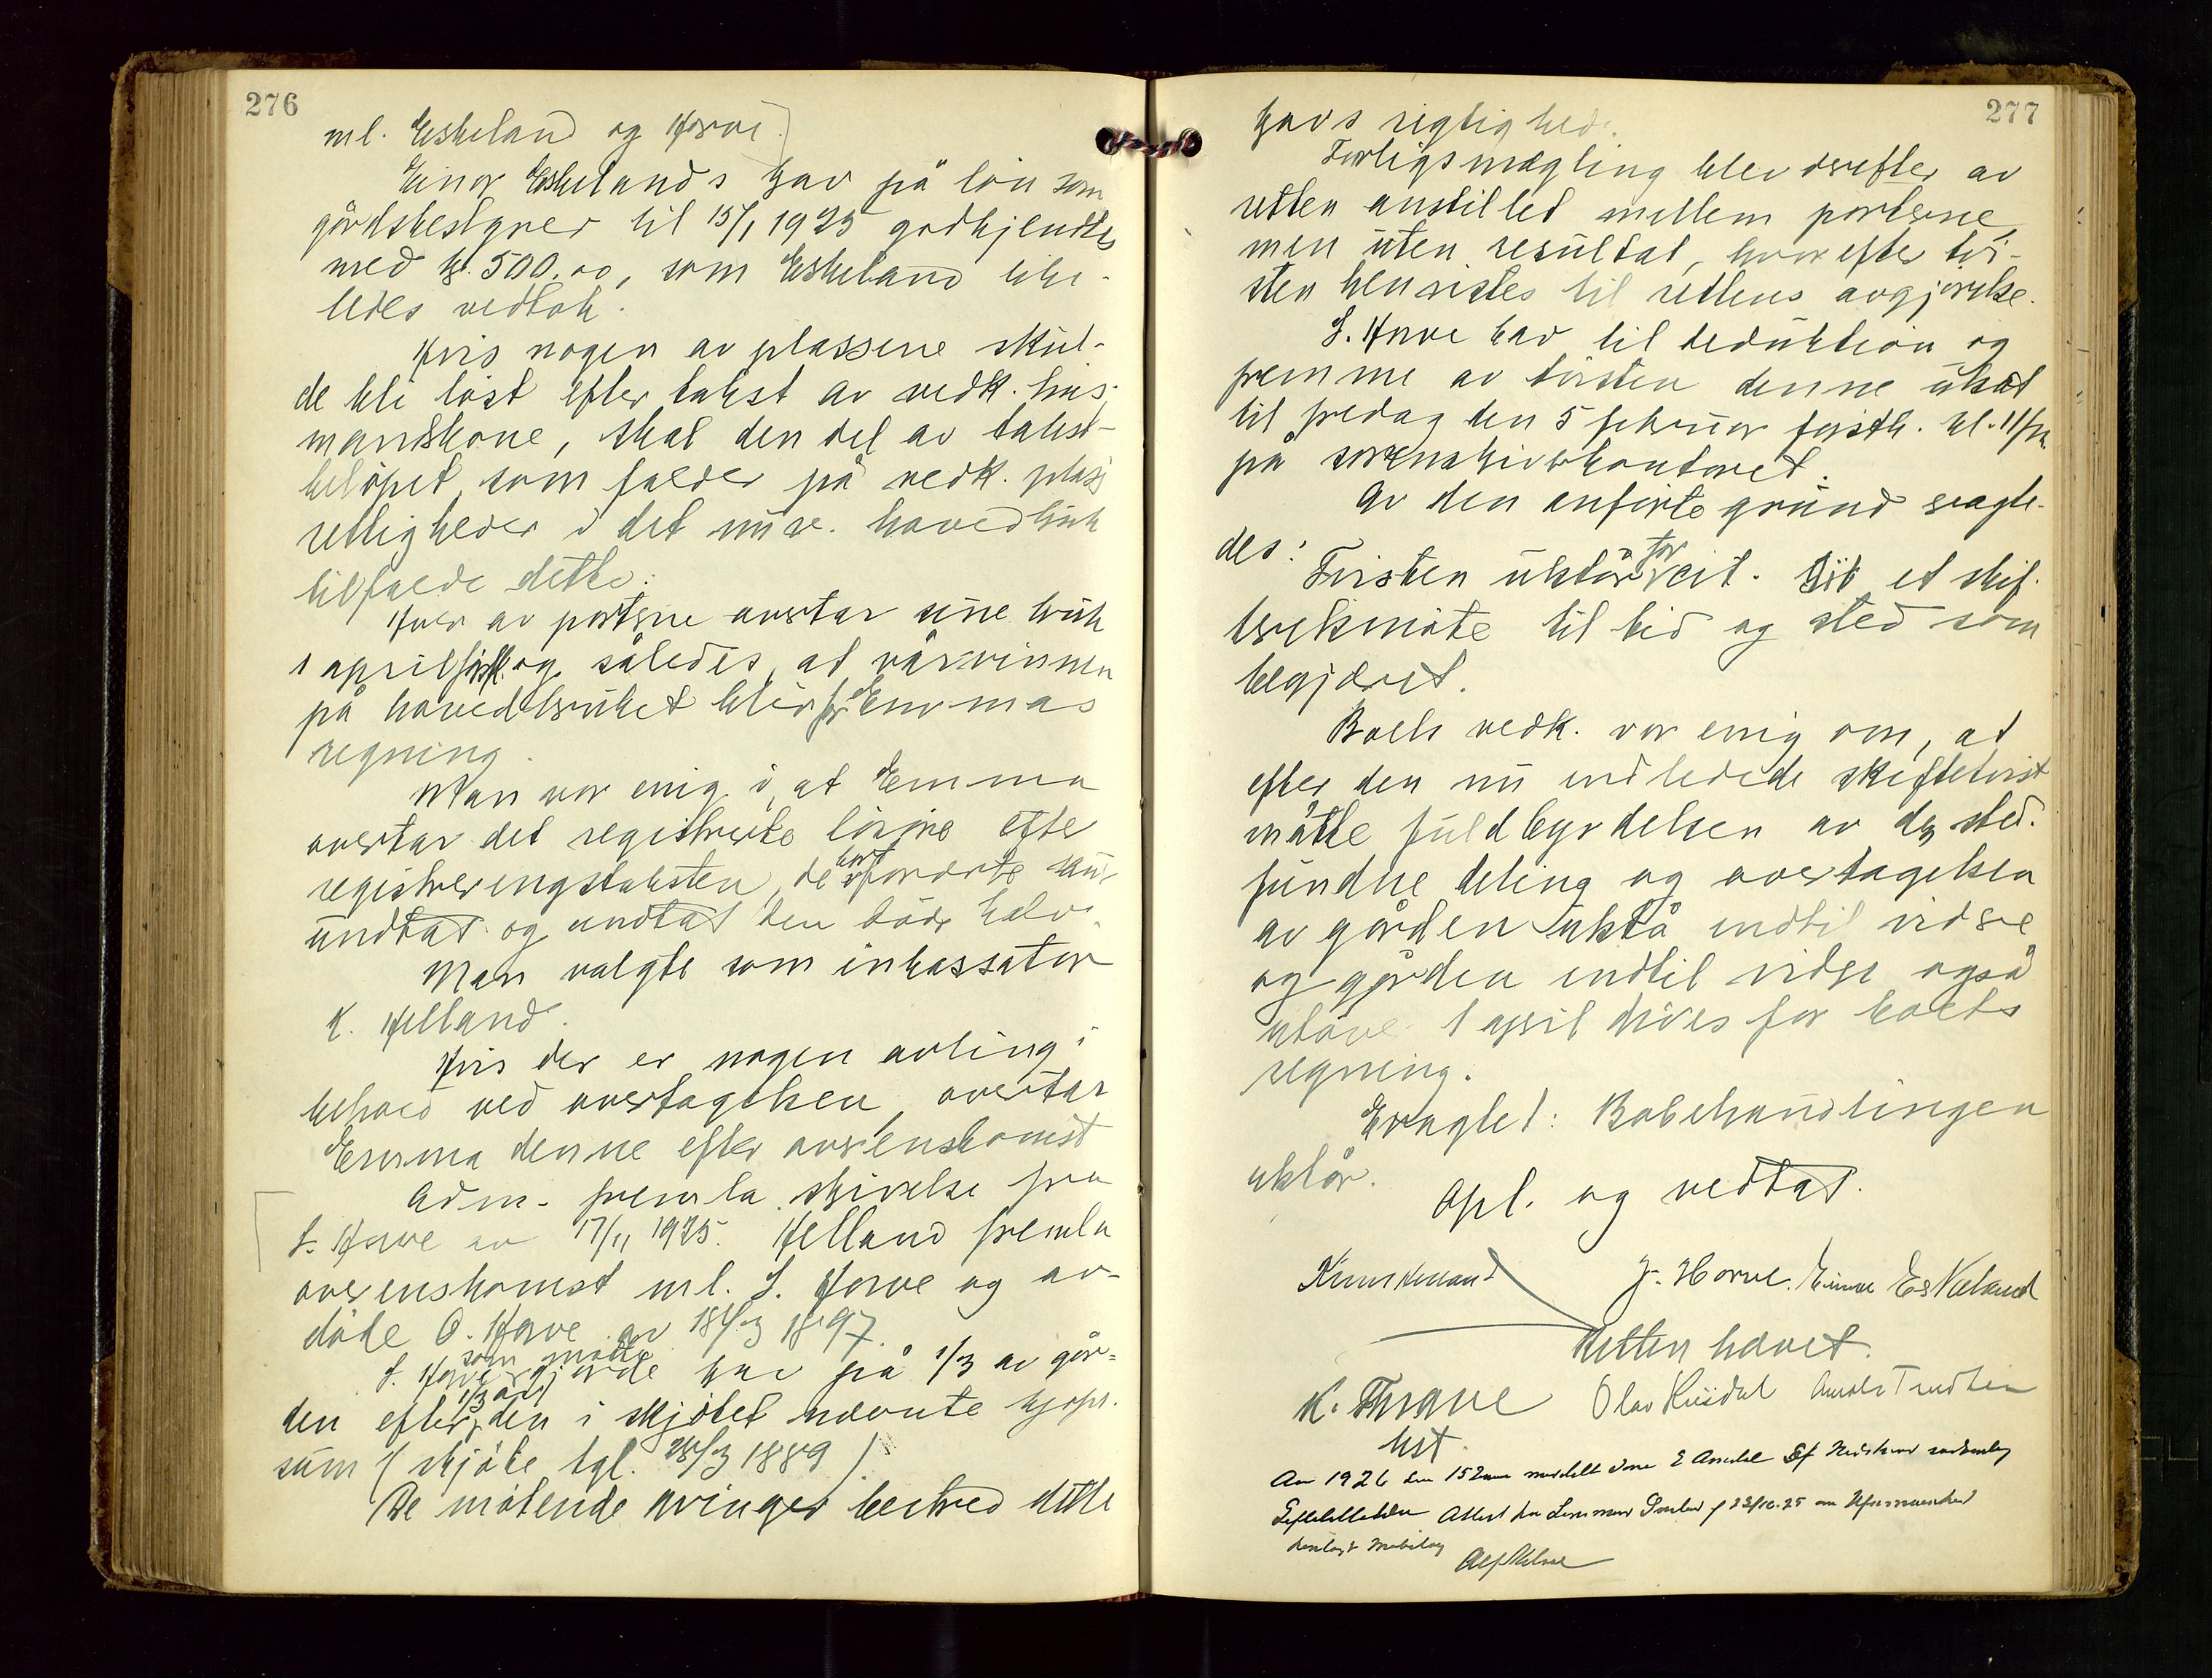 276
ml. Eskeland og Horve.]
Einar Eskelands krav på lön som
gårdsbestyrer til 15/1 1925 godkjendtes
med kr. 500.00, som Eskeland like-
ledes vedtok.
Hvis nogen av plassene skul-
de bli löst efter takst av vedk. hus-
mandskone, skal den del av takst-
belöpet, som falder på vedk. plass
rettigheder i det nuv. hovedbruk
tilfalde dette.
Hver av parterne overtar sine bruk
1 april förstk. og således, at vårvinnen
på hovedbruket blir for Emmas
regning.
Man var enig i, at Emma
overtar det registrerte lösöre efter
registreringstaksten, de bortforærte
undtat og undtat den döde kalv.
Man valgte som inkassator
K. Helland.
Hvis der er nogen avling i
behold ved overtagelsen, overtar
Emma denne efter overenskomst
Adm. fremla skrivelse fra
S. Horve av 17/11 1925. Helland fremla
overenskomst ml. S. Horve og av-
döde O. Horve av 18/3 1897.
som mötte
S. Horve gjorde krav på 1/3 av går-
1/3 av
den efter den i skjötet nævnte kjöpe-
sum (skjöte tgl. 28/3 1889).
De mötende arvinger bestred dette
277
kravs rigtighed.
Forligsmægling blev derefter av
retten anstillet mellem parterne,
men uten resultat, hvorefter tvi-
sten henvistes til rettens avgjörelse.
S. Horve bad til deduktion og
fremme av tvisten denne utsat
til fredag den 5 februar förstk. kl. 11 fm.
på sorenskriverkontoret.
Av den anförte grund eragte-
des:
Tvisten utstår for cit. et skif-
teretsmöte til tid og sted som
begjæret.
Boets vedk. var enig om, at
efter den nu indledede skiftetvist
måtte fuldbyrdelsen av den sted-
fundne deling og overtagelsen
av gården utstå indtil videre
og gården indtil videre også
utover 1 april drives for boets
regning.
Eragtet: Bobehandlingen
utstår.
Opl. og vedtat.
Knut Helland S. Horve. Einar Eskeland
Retten hævet.
K. Thrane Olav Arnold
kst.
Aar 1926 den 15 meddelt
Attest 23/10.25 om